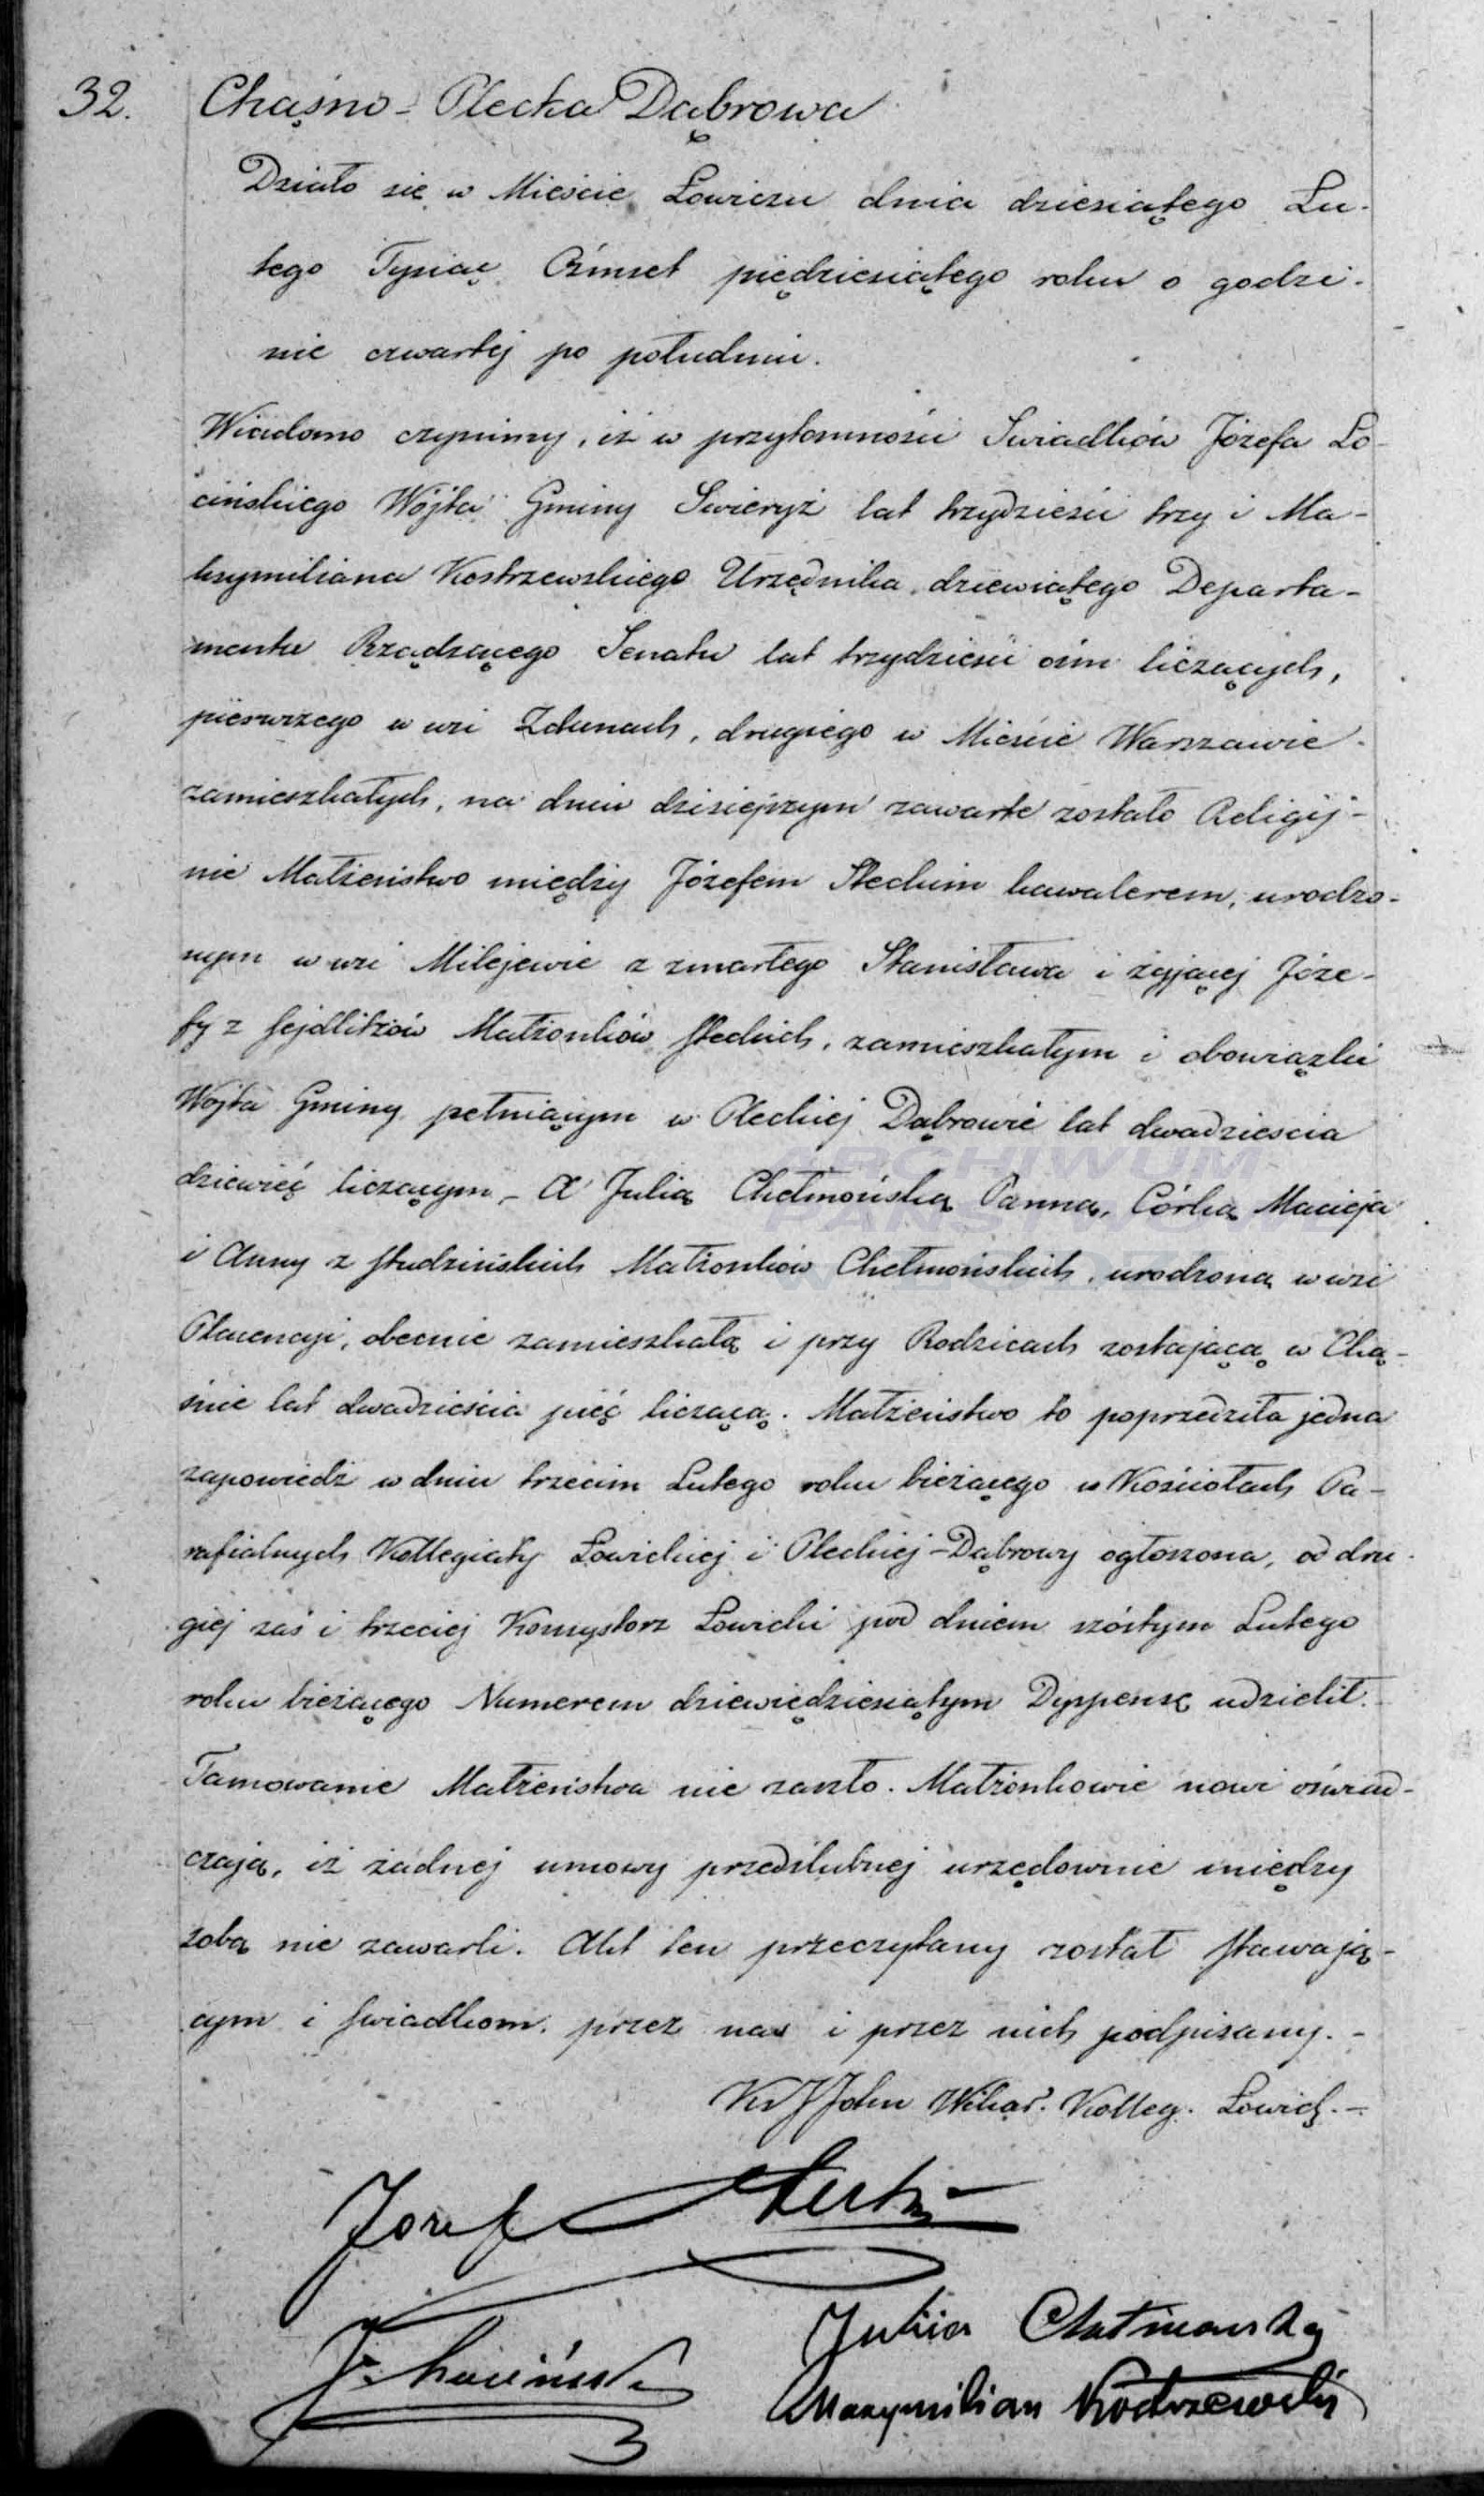 32. Chaśno - Plecka Dąbrowa
Działo się w Mieście Łowiczu dnia dziesiątego Lu-
tego Tysiąc Ośmset piędziesiątego roku o godzi-
nie czwartej po południu.
Wiadomo czynimy, iż w przytomności Świadków Józefa Ło-
cińskiego Wójta Gminy Świeryż lat trzydzieści trzy i Ma-
ksymiliana Kostrzewskiego Urzędnika dziewiątego Departa-
mentu Rządzącego Senatu lat trzydzieści ośm liczących,
pierwszego w wsi Zdunach, drugiego w Mieście Warszawie
zamieszkałych, na dniu dzisiejszym zawarte zostało Religij-
nie Małżeństwo między Józefem Steckim kawalerem, urodzo-
nym w wsi Milejewie z zmarłego Stanisława i żyjącej Józe-
fy z Sejdlitzów Małżonków Steckich, zamieszkałym i obowiązki
Wójta Gminy pełniącym w Pleckiej Dąbrowie lat dwadzieścia
dziewięć liczącym, - A Julią Chełmońską Panną, Córką Macieja
i Anny z Studzińskich Małżonków Chełmońskich, urodzoną w wsi
Placencyi, obecnie zamieszkałą i przy Rodzicach zostającą w Chą-
śnie lat dwadzieścia pięć liczącą. Małżeństwo to poprzedziła jedna
zapowiedź w dniu trzecim Lutego roku bieżącego w Kościołach Pa-
rafialnych Kollegiaty Łowickiej i Pleckiej-Dąbrowy ogłoszona, od dru-
giej zaś i trzeciej Konsystorz Łowicki pod dniem szóstym Lutego
roku bieżącego Numerem dziewiędziesiątym Dyspensę udzielił.
Tamowanie Małżeństwa nie zaszło. Małżonkowie nowi oświad-
czają, iż żadnej umowy przedślubnej urzędownie między
sobą nie zawarli. Akt ten przeczytany został stawają-
cym i świadkom, przez nas i przez nich podpisany. -
Ks J John Wikar. Kolleg. Łowick. -
Jozef Stecki
Julia Chełmońska
J. Łociński
Maxymilian Kostrzewski